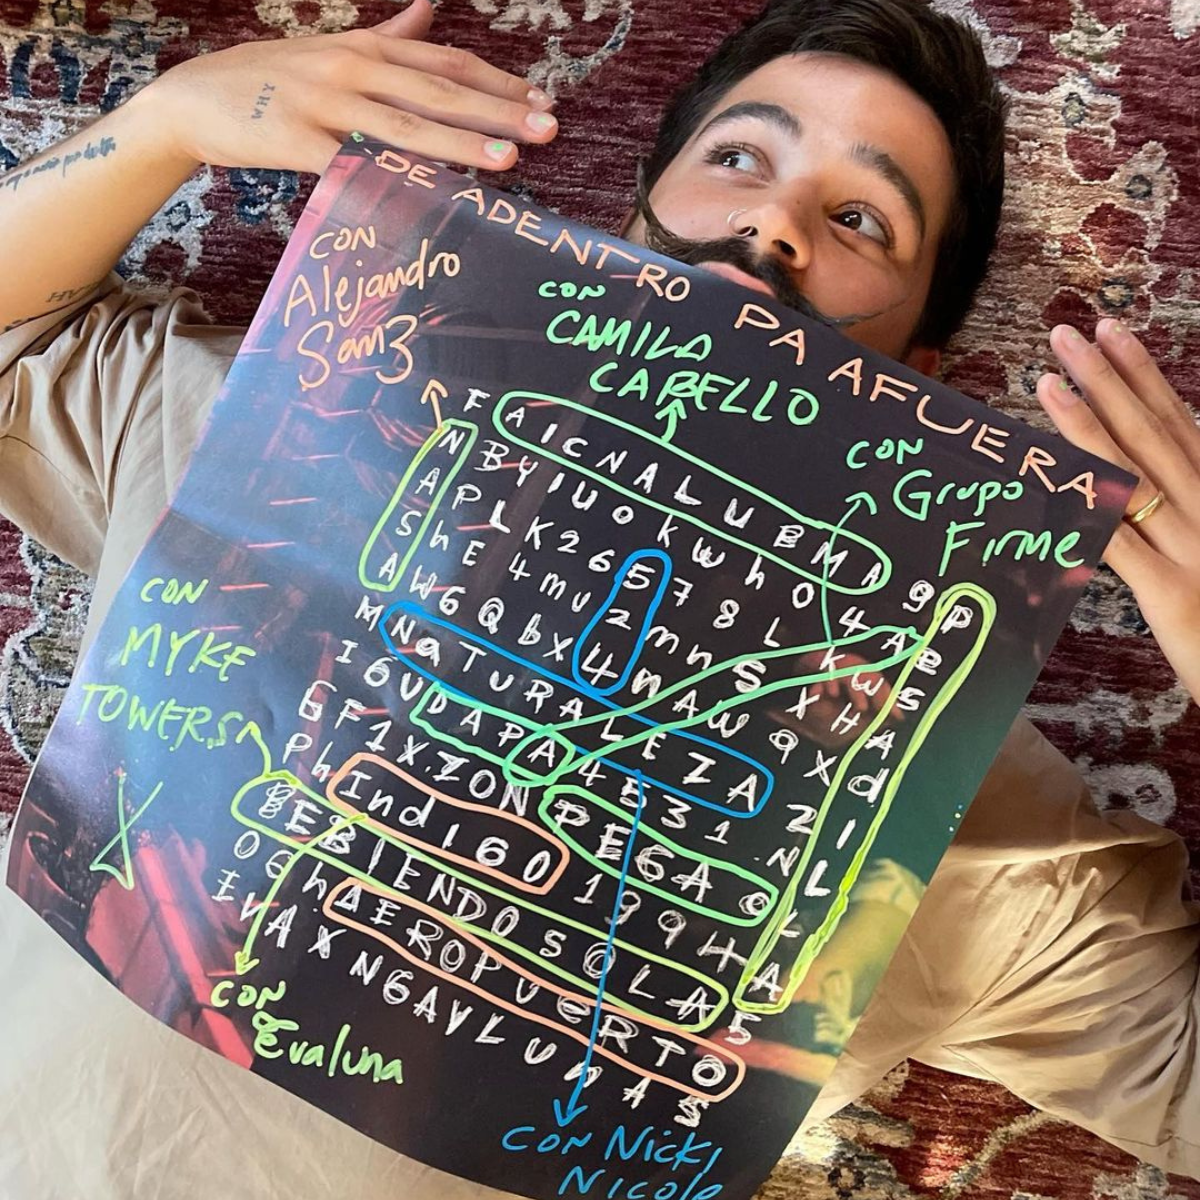 WHY
DE ADENTRO PA AFUERA
CON
Alejandro
Sanz
CON
CAMILA
CABELLO
CON
Grupo
Firme
F A I C N A L U B M A 9 P
N B Y I U O K W h O 4 A e
A P L K 2 6 5 7 8 L K W S
S h E 4 m U 2 m n S X H A
A W 6 Q b X 4 n A W Q X d
M N a T U R A L E Z A Z I
I 6 U D A P A 4 5 3 1 N L
G F 1 X Z O N P E G A O L
P h I n d I G O 1 9 9 H A
B E B I E N D O S O L A 5
O G h A E R O P U E R T O
I V A X N G A V L U N A S
CON
MYKE
TOWERS
CON
Evaluna
CON Nicki
Nicole